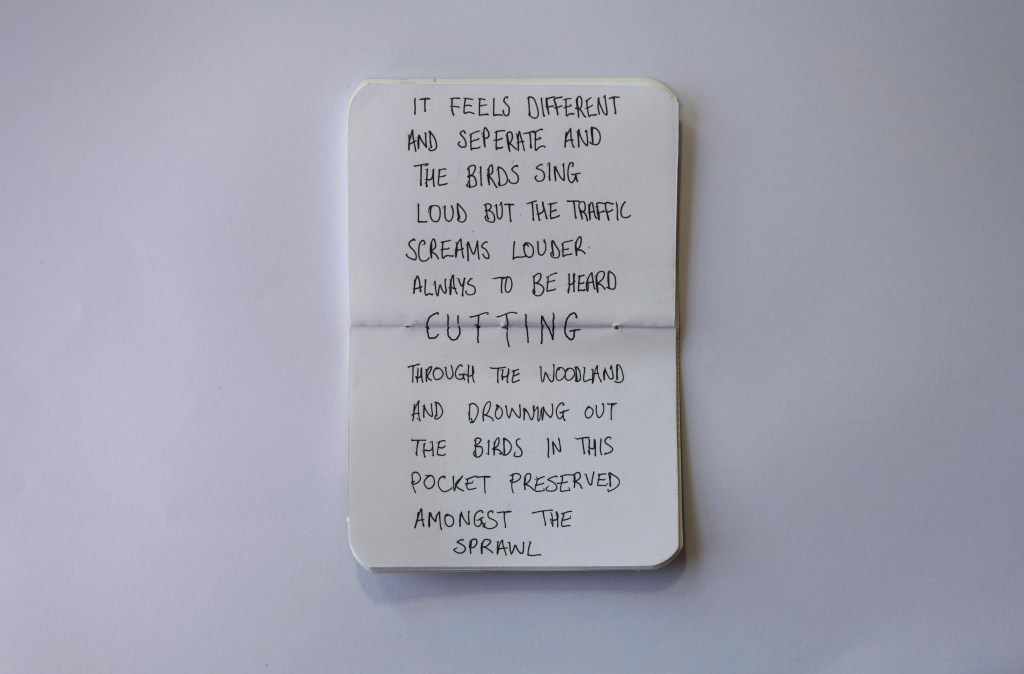 IT FEELS DIFFERENT
AND SEPERATE AND
THE BIRDS SING
LOUD BUT THE TRAFFIC
SCREAMS LOUDER
ALWAYS TO BE HEARD
CUTTING
THROUGH THE WOODLAND
AND DROWNING OUT
THE BIRDS IN THIS
POCKET PRESERVED
AMONGST THE
SPRAWL